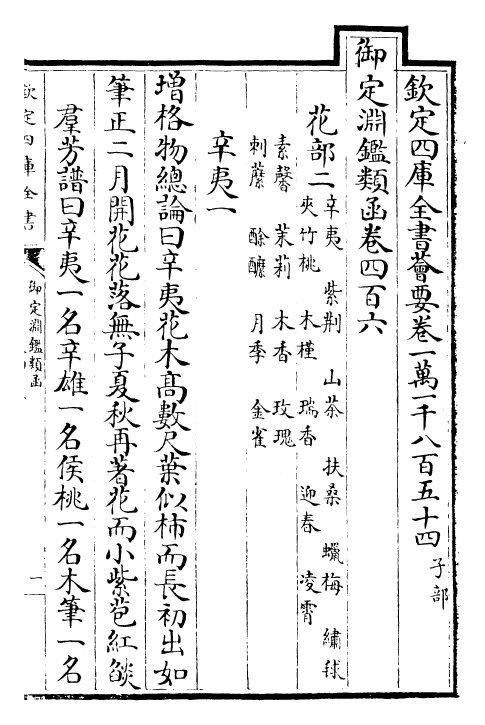 欽定四庫全書薈要卷一萬一千八百五十四 子部
御定淵鑑類函卷四百六
花部二 辛夷 紫荆 山茶 扶桑 蠟梅 繡毬
夾竹桃 木槿 瑞香 迎春 凌霄
素馨 茉莉 木香 玫瑰
刺蘼 酴醿 月季 金雀
辛夷一
增格物總論曰辛夷花木高數尺葉似柿而長初出如
筆正二月開花花落無子夏秋再著花而小紫苞紅燄
羣芳譜曰辛夷一名辛雉一名侯桃一名木筆一名
欽定四庫全書
御定淵鑑類函
一